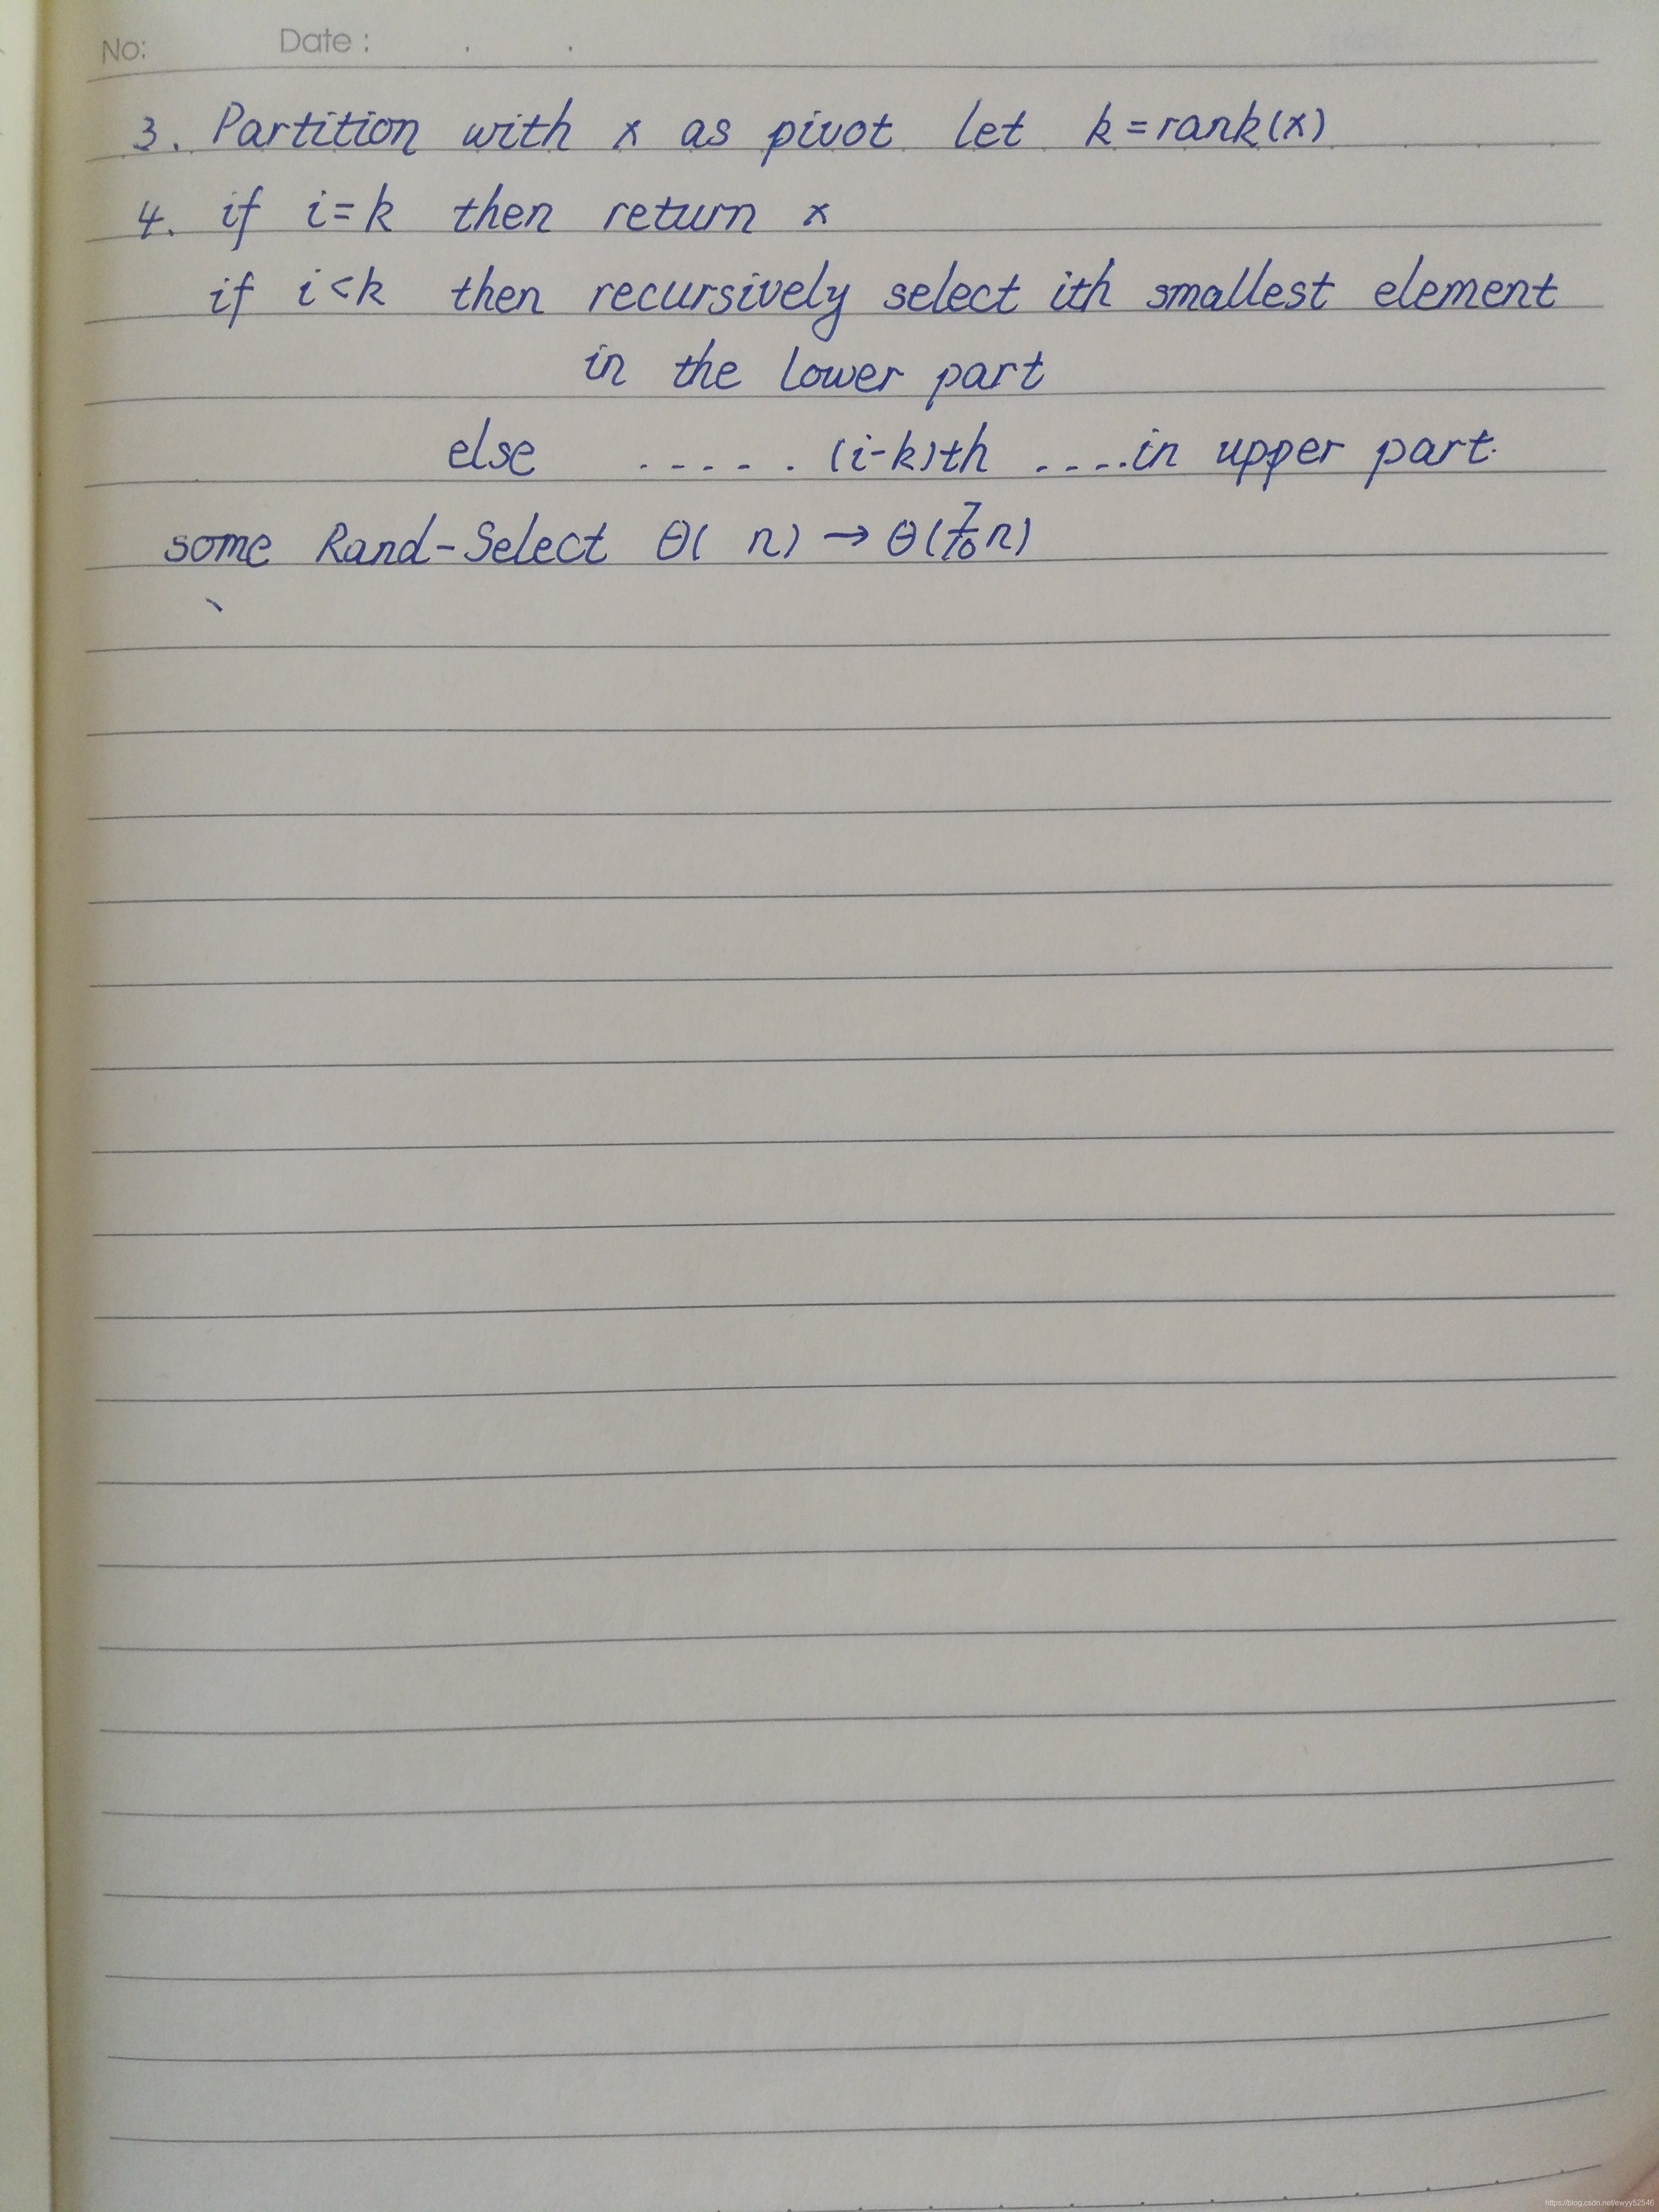 No: Date : . .
3. Partition with x as pivot let k=rank(x)
4. if i=k then return x
if i<k then recursively select ith smallest element
in the lower part
else ..... . (i-k)th ....in upper part.
some Rand-Select Θ( n) → Θ(7/10 n)
https://blog.csdn.net/ewyy52546